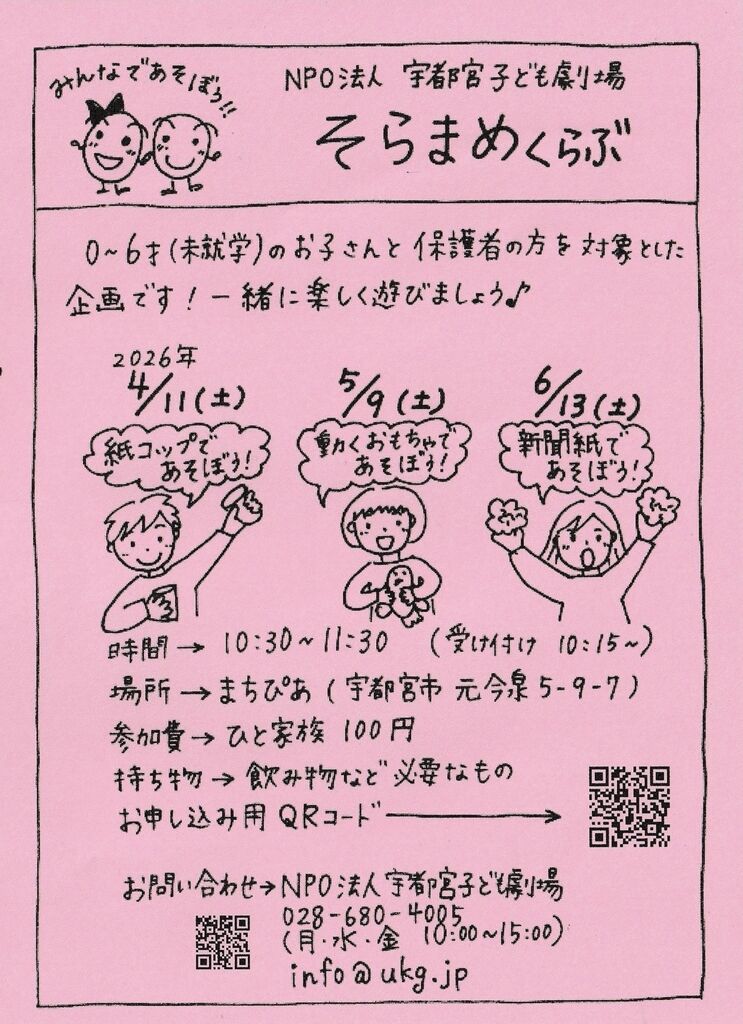 みんなであそぼう!!
NPO法人 宇都宮子ども劇場
そらまめくらぶ
0~6才(未就学)のお子さんと保護者の方を対象とした
企画です!一緒に楽しく遊びましょう♪
2026年
4/11(土)
5/9(土)
6/13(土)
紙コップで
あそぼう!
動くおもちゃで
あそぼう!
新聞紙で
あそぼう!
時間→ 10:30~11:30 (受け付け 10:15~)
場所→まちぴあ(宇都宮市 元今泉5-9-7)
参加費→ひと家族 100円
持ち物→飲み物など必要なもの
お申し込み用QRコード→
お問い合わせ→NPO法人宇都宮子ども劇場
028-680-4005
(月・水・金 10:00~15:00)
info@ukg.jp